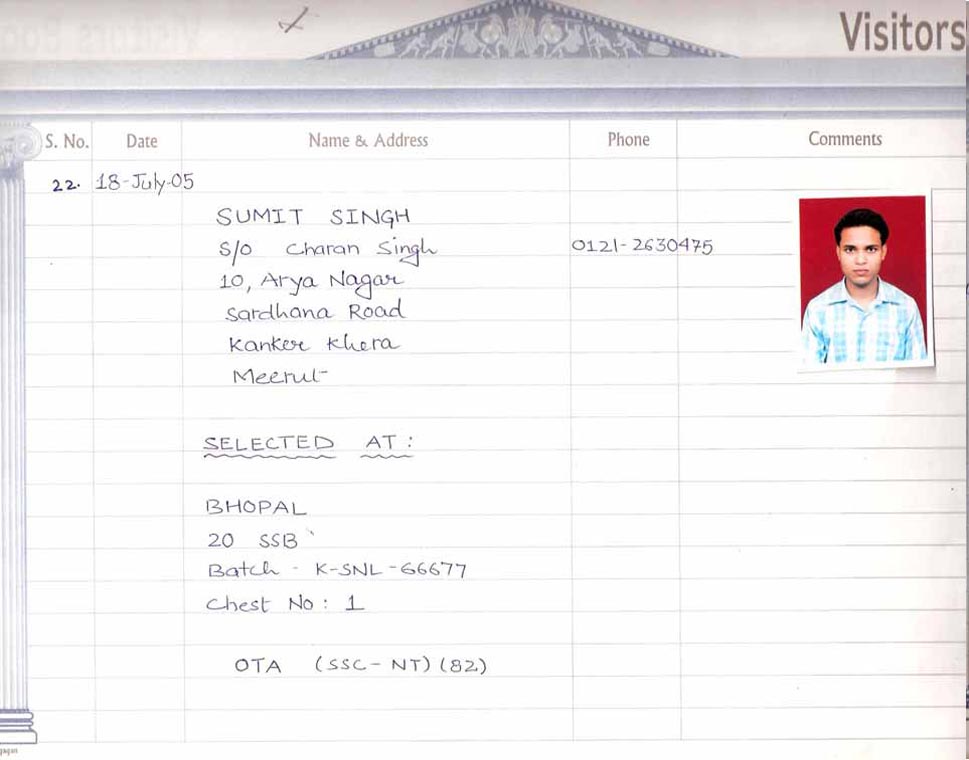 Visitors
S. No. Date Name & Address Phone Comments
22. 18-July-05
SUMIT SINGH
S/O Charan Singh 0121-2630475
10, Arya Nagar
Sardhana Road
Kanker Khera
Meerut
SELECTED AT :
BHOPAL
20 SSB
Batch - K-SNL-66677
Chest No : 1
OTA (SSC-NT) (82)